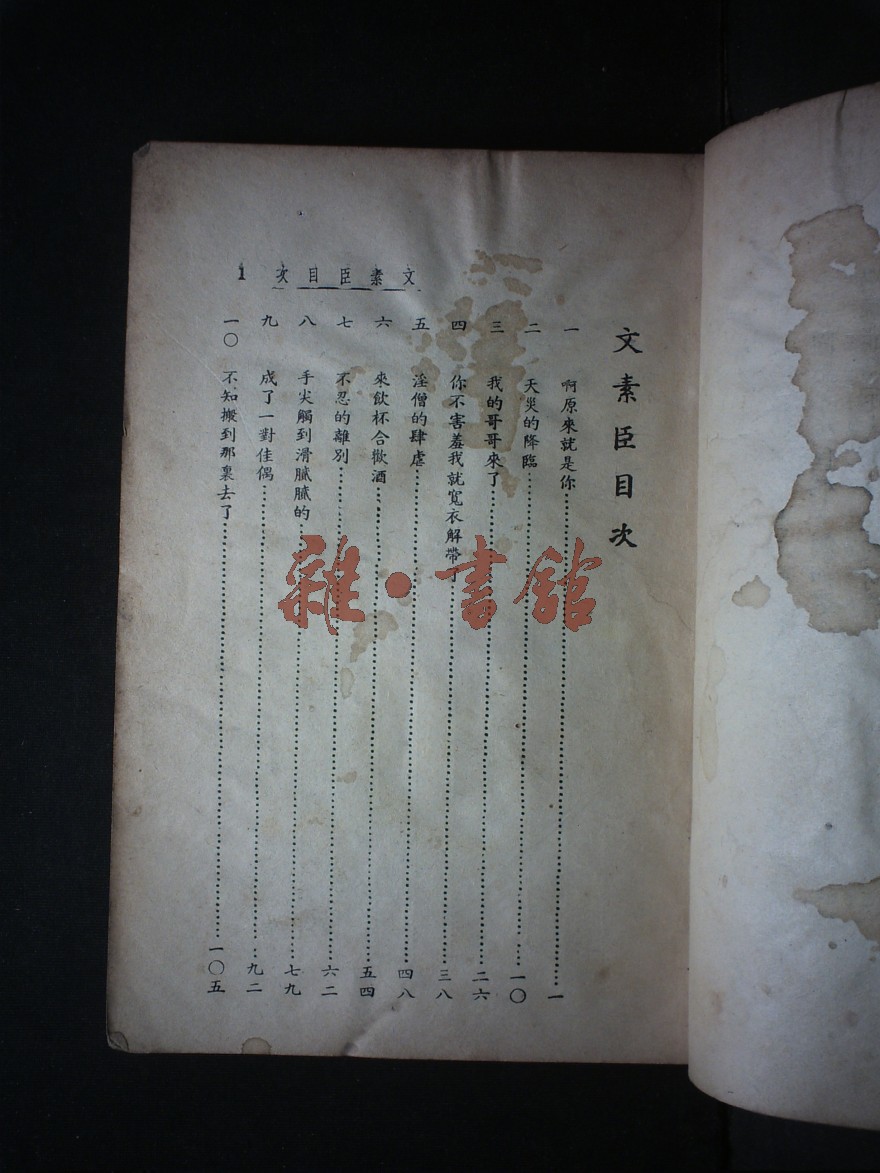 文素臣目次 1
文素臣目次
一 啊原來就是你……一
二 天災的降臨……一〇
三 我的哥哥來了……二六
四 你不害羞我就寬衣解帶了……三八
五 淫僧的肆虐……四八
六 來飲杯合歡酒……五四
七 不忍的離別……六二
八 手尖觸到滑膩膩的……七九
九 成了一對佳偶……九二
一〇 不知搬到那裏去了……一〇五
雜·書館